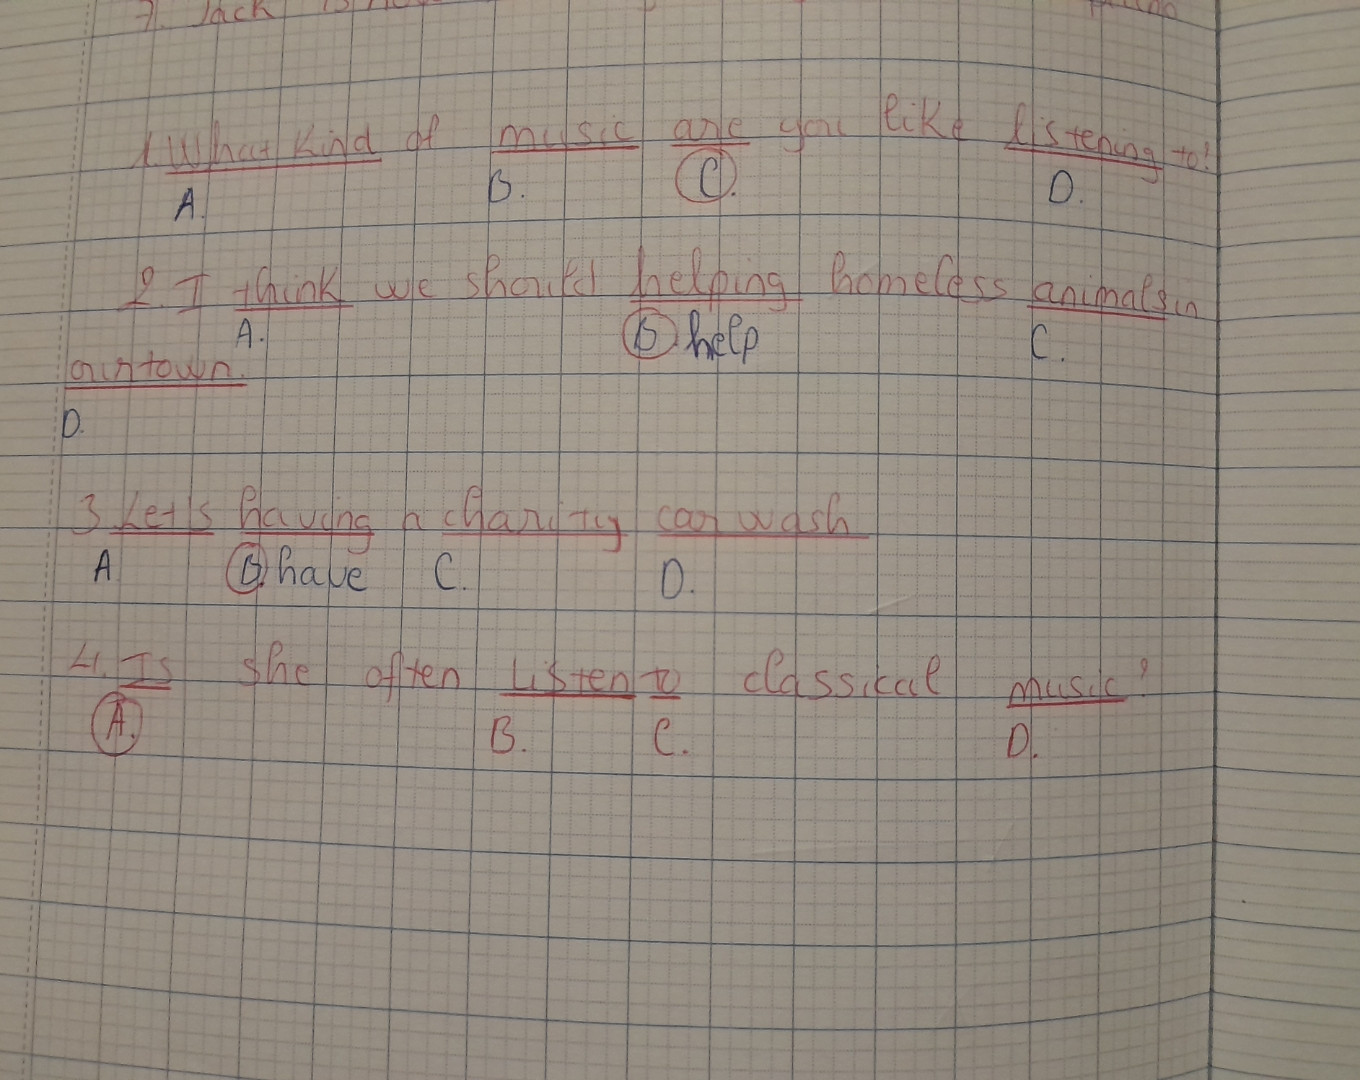 7. Jack is
1. What kind of music are you like listening to?
A. B. C. D.
2. I think we should helping homeless animals in
A. B help C.
our town.
D.
3 Let's having a charity car wash
A B. have C. D.
4. Is she often listen to classical music?
A. B. C. D.